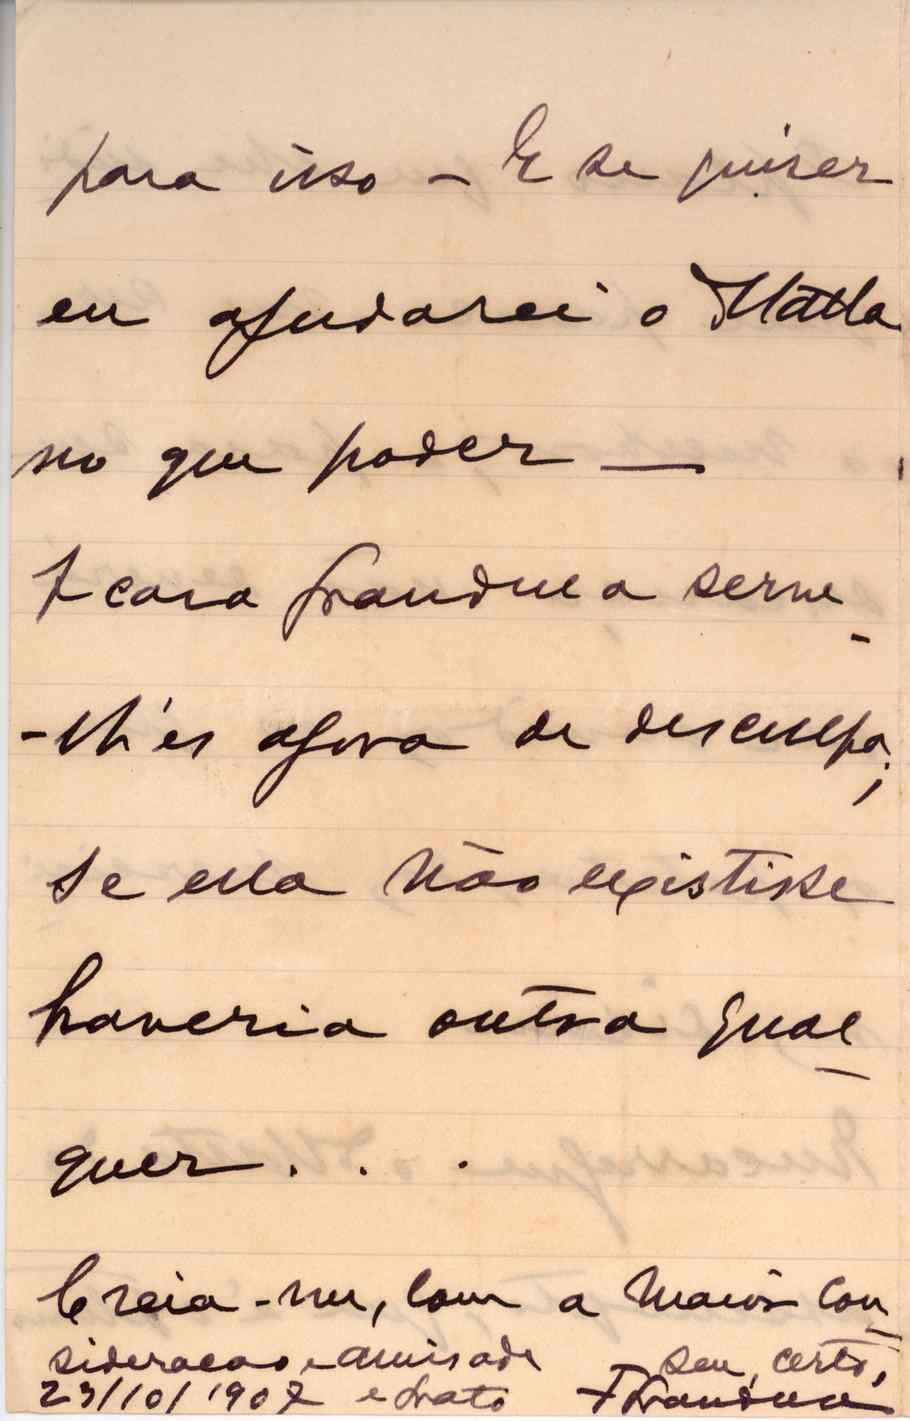 para isso – E se quiser
eu ajudarei o Matta
no que poder —
A cara Grandula serve-
-lh'es agora de desculpa;
se ella não existisse
haveria outra qual-
quer . . .
Creia-me, com a maior con-
sideracao e amisade seu, certo,
23/10/1907 e grato